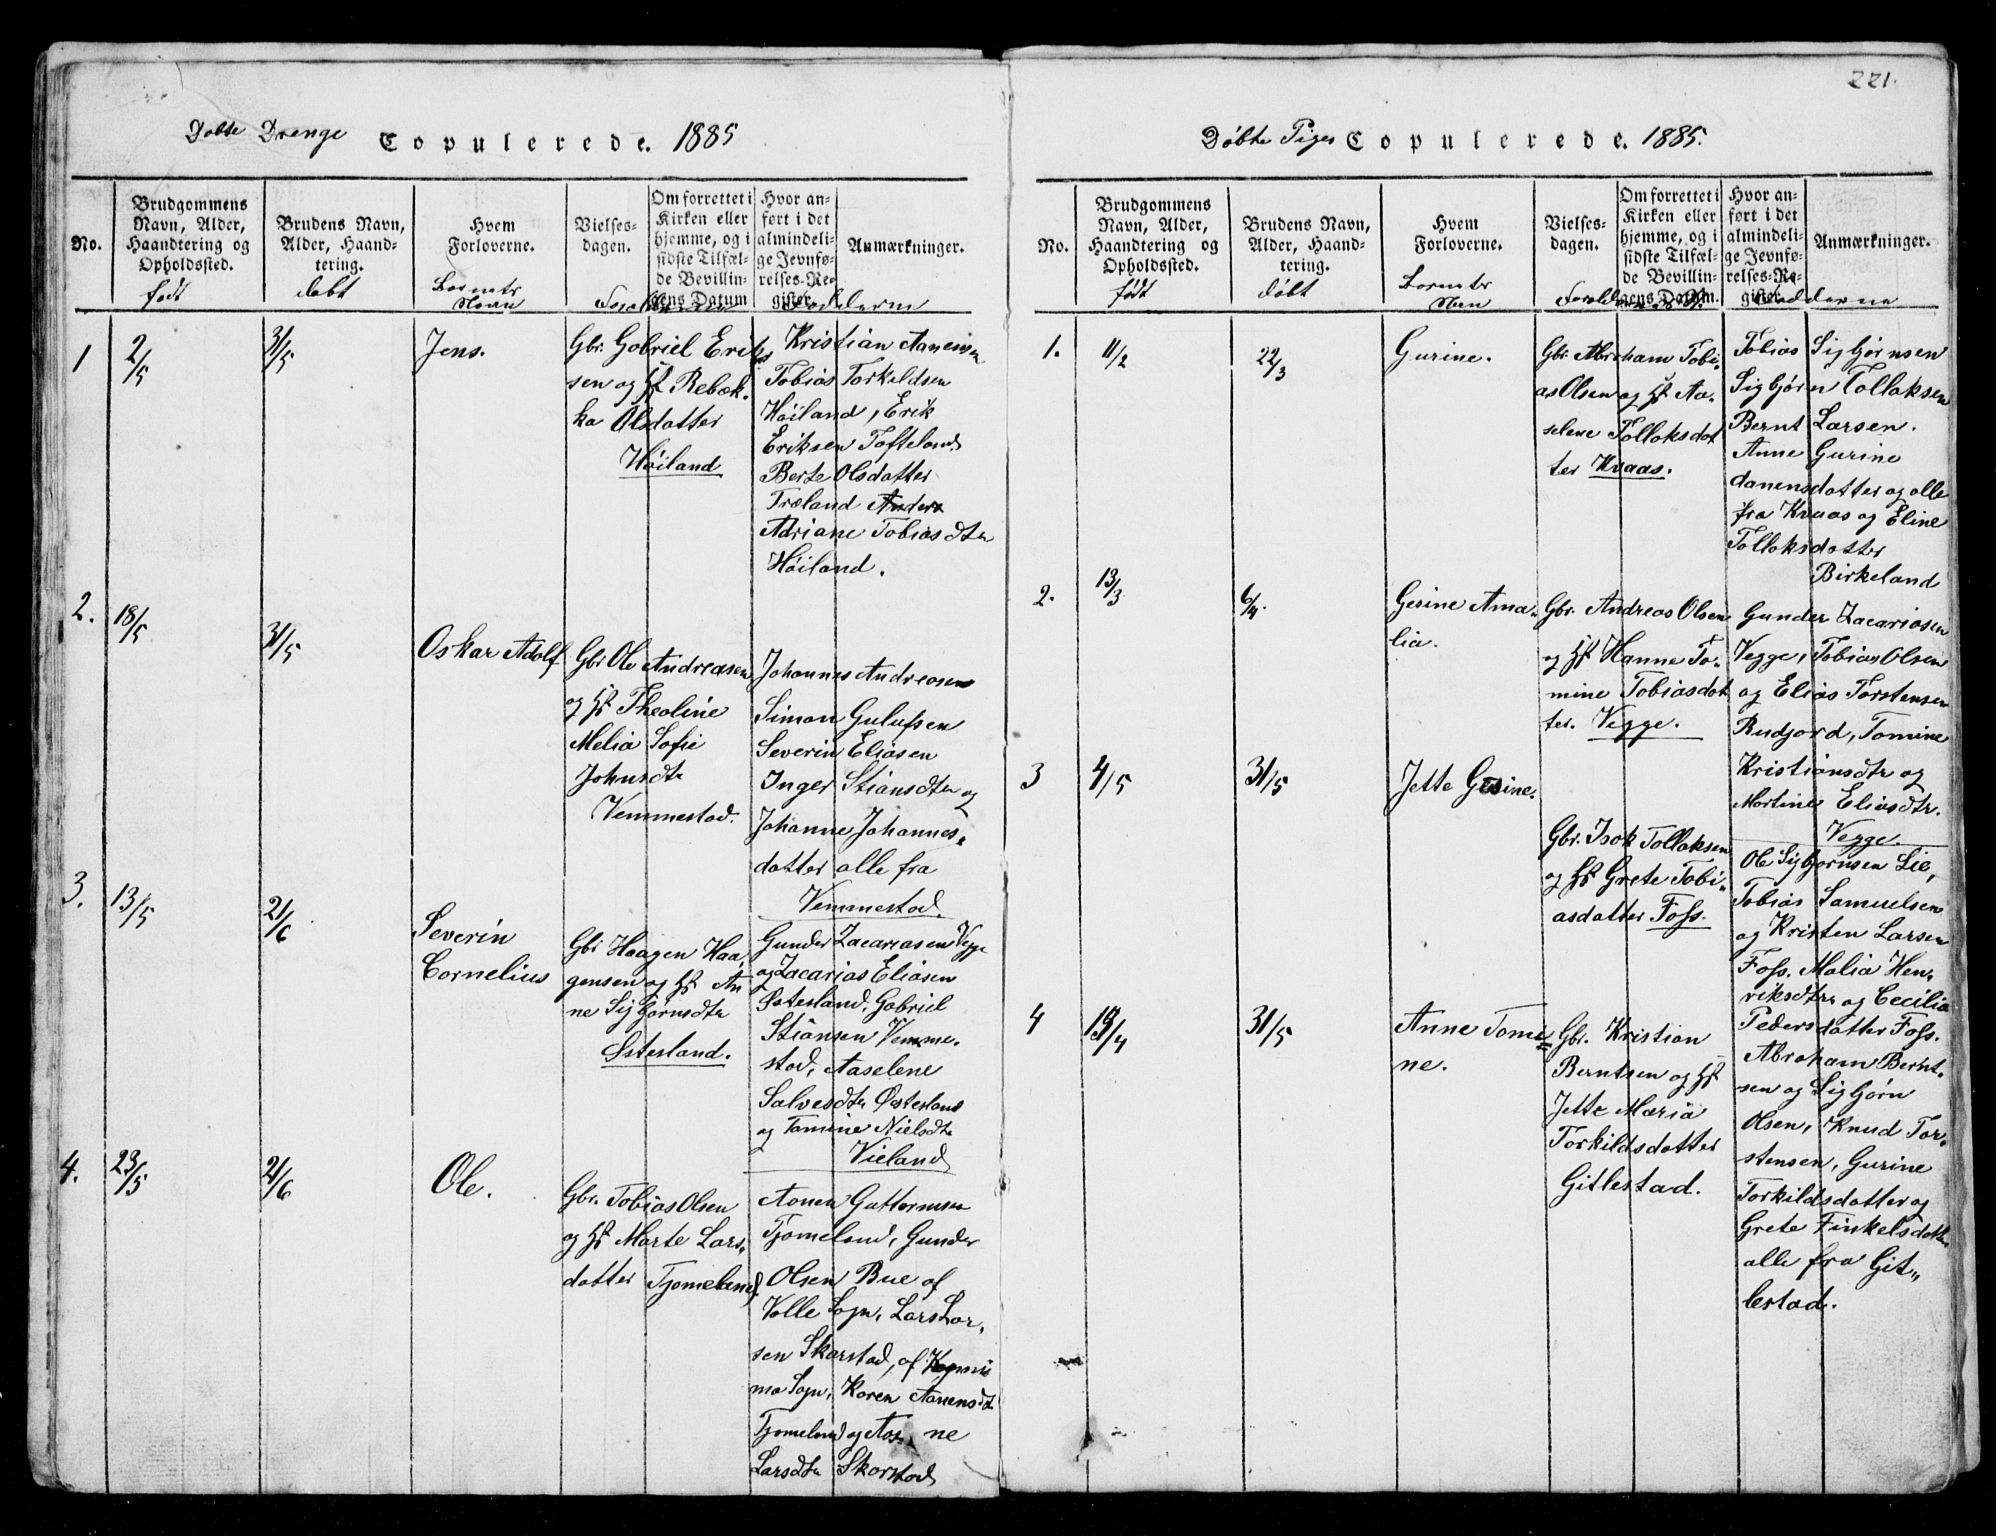 Døbte Drenge Copulerede. 1885
No.
Brudgommens
Navn, Alder,
Haandtering og
Opholdssted.
født
Brudens Navn,
Alder, Haand-
tering.
døbt
Hvem
Forloverne.
Barnets
Navn
Vielses-
dagen.
Om forrettet i
Kirken eller
hjemme, og i
sidste Tilfæl-
de Bevillin-
gens Datum
Hvor an-
ført i det
almindeli-
ge Jevnfø-
relses-Re-
gister.
Anmærkninger.
Fadderne
1
2/5
31/5
Jens.
Gbr. Gabriel Erik
sen og Hst Rebek-
ka Olsdatter
Höiland
Kristian Aanensen
Tobias Torkildsen
Höiland, Erik
Eriksen Tofteland
Berte Olsdatter
Træland
Adriane Tobiasdtr
Höiland.
2.
18/5
31/5
Oskar Adolf
Gbr Ole Andreasen
og Hst Theoline
Melia Sofie
Johnsdtr
Vemmestad.
Johannes Andreasen
Simon Gulufsen
Severin Eliasen
Inger Stiansdtr og
Johanne Johannes-
datter alle fra
Vemmestad.
3.
13/5
21/6
Severin
Cornelius
Gbr Haagen Haa-
gensen og Hst An
ne Sigbjørnsdtr
Østesland.
Gunder Zacariasen Vegge
og Zacarias Eliasen
Østesland, Gabriel
Stiansen Vemme-
stad, Aaselene
Salvesdtr Østesland
og Tomine Nielsdtr
Vieland
4.
23/5
21/6
Ole.
Gbr. Tobias Olsen
og Hst Marte Lars-
datter Tjomeland
Aanen Guttormsen
Tjomeland, Gunder
Olsen Bue af
Valle Sogn, Lars Lar-
sen Skarstad, af
Sogn, Karen Aanensdt
Tjomeland og Aas ne
Larsdtr Skarstad
221.
Døbte Piger Copulerede. 1885.
No.
Brudgommens
Navn, Alder,
Haandtering og
Opholdssted.
født
Brudens Navn,
Alder, Haand-
tering.
døbt
Hvem
Forloverne.
Barnets
Navn
Vielses-
dagen.
Om forrettet i
Kirken eller
hjemme, og i
sidste Tilfæl-
de Bevillin-
gens Datum.
Hvor an-
ført i det
almindeli-
ge Jevnfø-
relses-Re-
gister.
Anmærkninger.
Fadderne
1.
11/2
22/3
Gurine.
Gbr Abraham Tobi-
as Olsen og Hst Aa-
selene Tollaksdat
ter Kvaas.
Tobias Sigbjørnsen
Sigbjørn Tollaksen
Bernt Larsen.
Anne Gurine
danensdatter og alle
fra Kvaas og Eline
Tollaksdatter
Birkeland
2.
13/3
6/4.
Gesine Ama-
lia.
Gbr. Andreas Olsen
og Hst Hanne To-
mine Tobiasdat
ter. Vegge.
Gunder Zacariasen
Vegge, Tobias Olsen
og Elias Torstensen
Rudjord, Tomine
Kristiansdtr og
Martine Eliasdtr.
Vegge.
3
4/5
31/5
Jette Gesine.
Gbr. Isak Tollaksen
og Hst Grete Tobi-
asdatter Foss.
Ole Sigbjørnsen Lie,
Tobias Samuelsen
og Kristen Larsen
Foss. Malia Hen-
riksdtr og Cecilia
Pedersdatter Foss.
4
19/4
31/5
Anne Tomi=
ne.
Gbr. Kristian
Berntsen og Hst
Jette Maria
Torkildsdatter
Gitlestad.
Abraham Bernt-
sen og Sigbjørn
Olsen, Knud Tor-
stensen, Gurine
Torkildsdatter og
Grete Finkelsdatter
alle fra Git-
lestad.